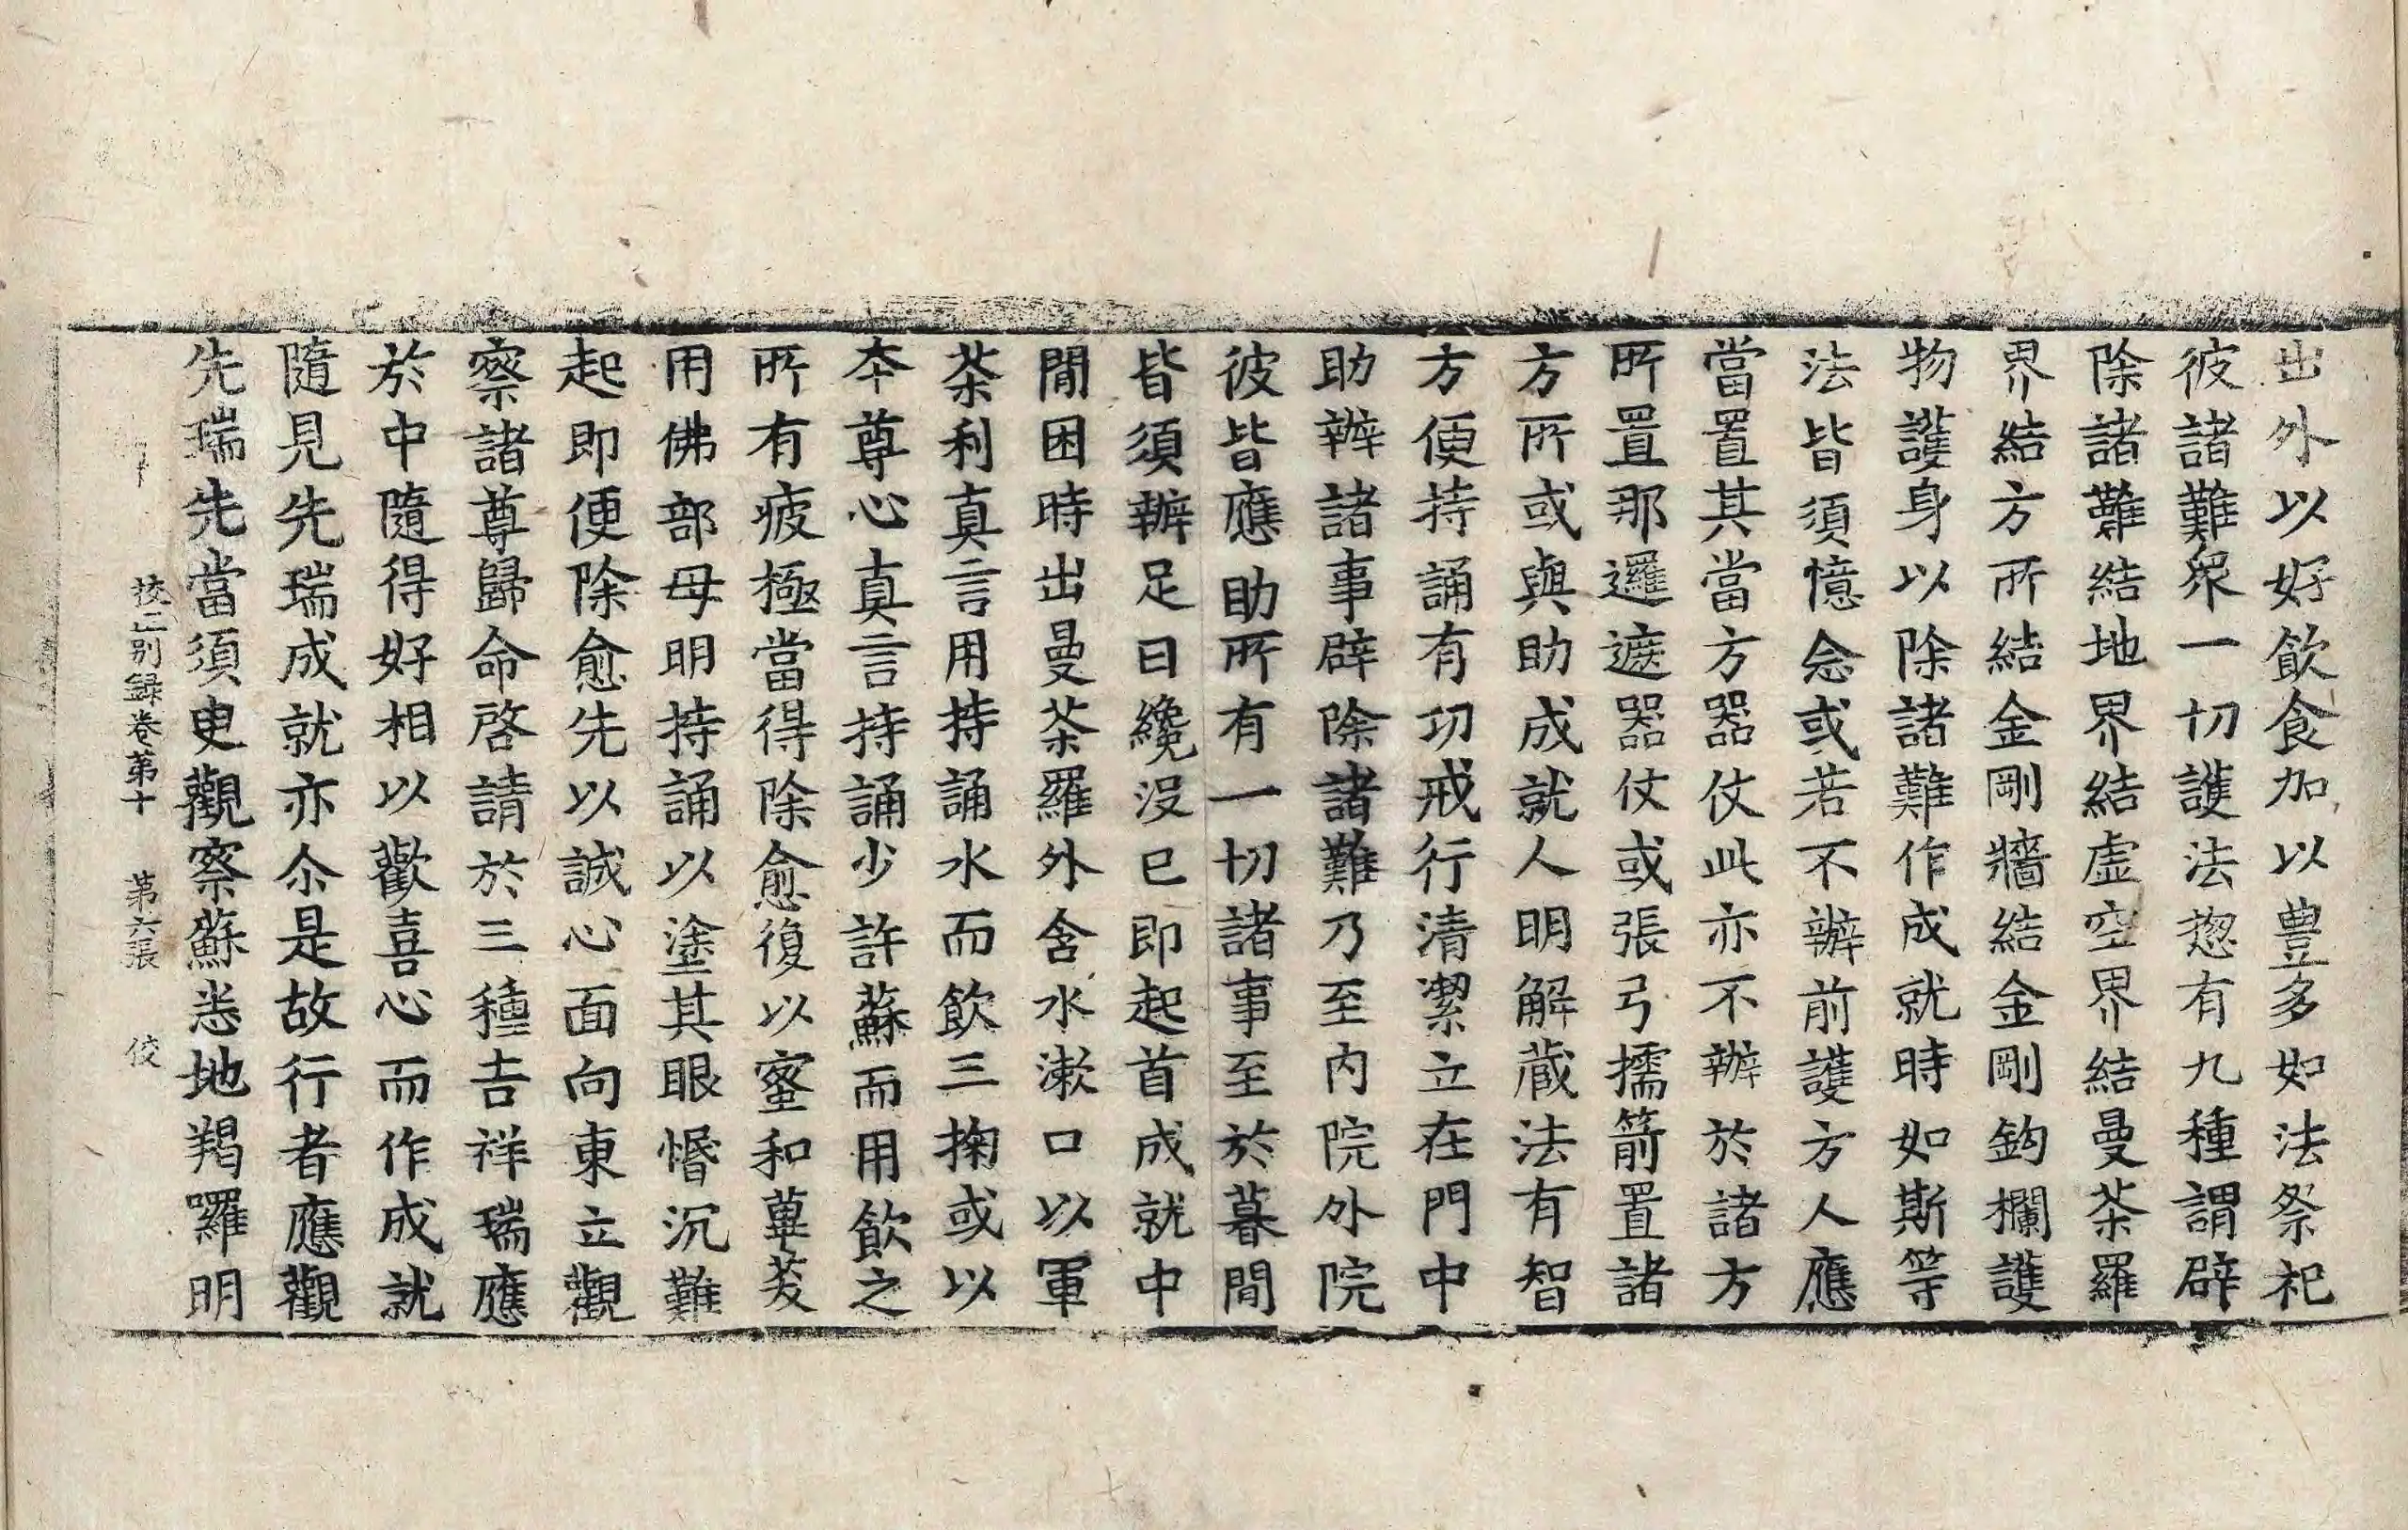 出外以好飲食加以豊多如法祭祀
彼諸難衆一切護法惣有九種謂辟
除諸難結地界結虛空界結曼荼羅
界結方所結金剛牆結金剛鈎欄護
物護身以除諸難作成就時如斯等
法皆須憶念或若不辦前護方人應
當置其當方器仗此亦不辦於諸方
所置那邏遮器仗或張弓擩箭置諸
方所或與助成就人明解藏法有智
方便持誦有功戒行清潔立在門中
助辦諸事辟除諸難乃至内院外院
彼皆應助所有一切諸事至於暮間
皆須辦足日纔没已即起首成就中
間困時出曼荼羅外含水漱口以軍
荼利真言用持誦水而飲三掬或以
本尊心真言持誦少許蘇而用飲之
所有疲極當得除愈復以蜜和蓽茇
用佛部母明持誦以塗其眼惛沉難
起即便除愈先以誠心面向東立觀
察諸尊歸命啓請於三種吉祥瑞應
於中隨得好相以歡喜心而作成就
隨見先瑞成就亦尒是故行者應觀
先瑞先當須更觀察蘇悉地羯囉明
挍正别録卷第十 第六張 佼